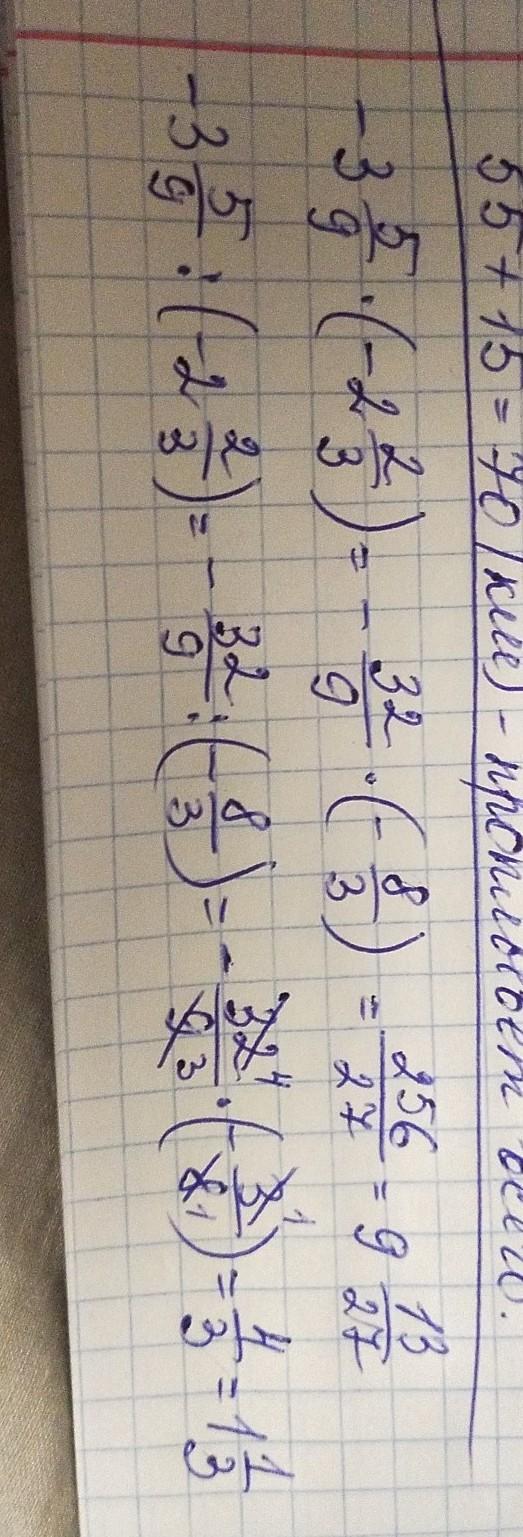 55 + 15 = 70 (км) - проплывёт всего.
-3 5/9 · (-2 2/3) = - 32/9 · (- 8/3) = 256/27 = 9 13/27
-3 5/9 : (-2 2/3) = - 32/9 : (- 8/3) = - 32 4/9 3 · (- 3 1/8 1) = 4/3 = 1 1/3